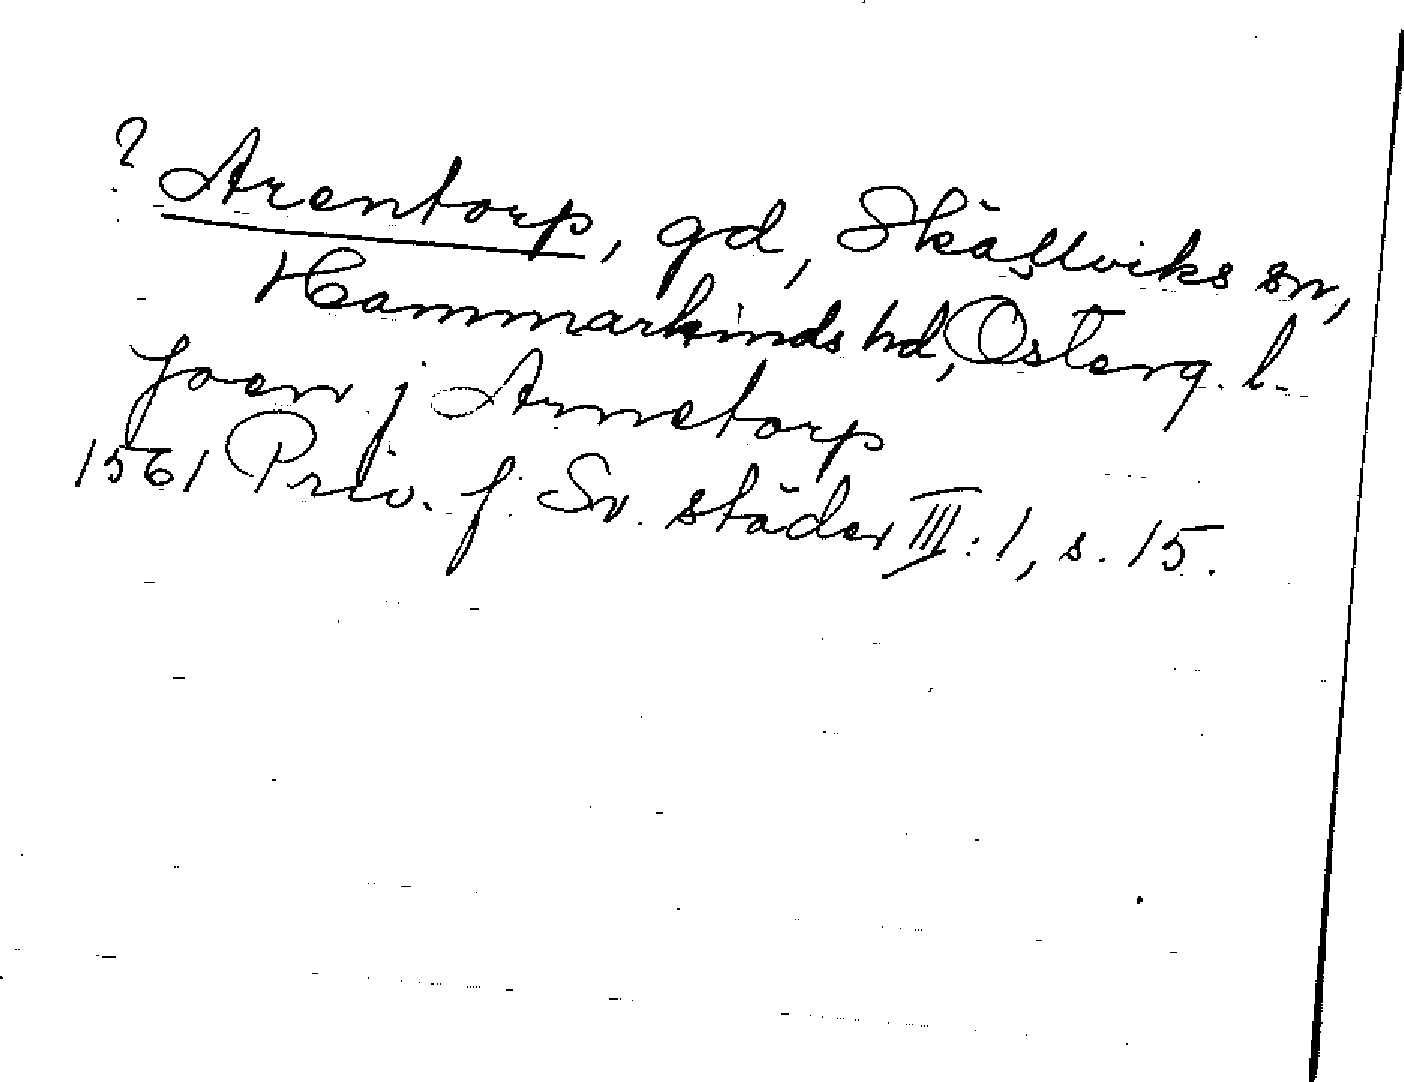 ? Arentorp, gd, Skällviks sn,
Hammarkinds hd, Österg. l.
Joen j Arnetorp
1561 Priv. f. Sv. städer III: 1, s. 15.